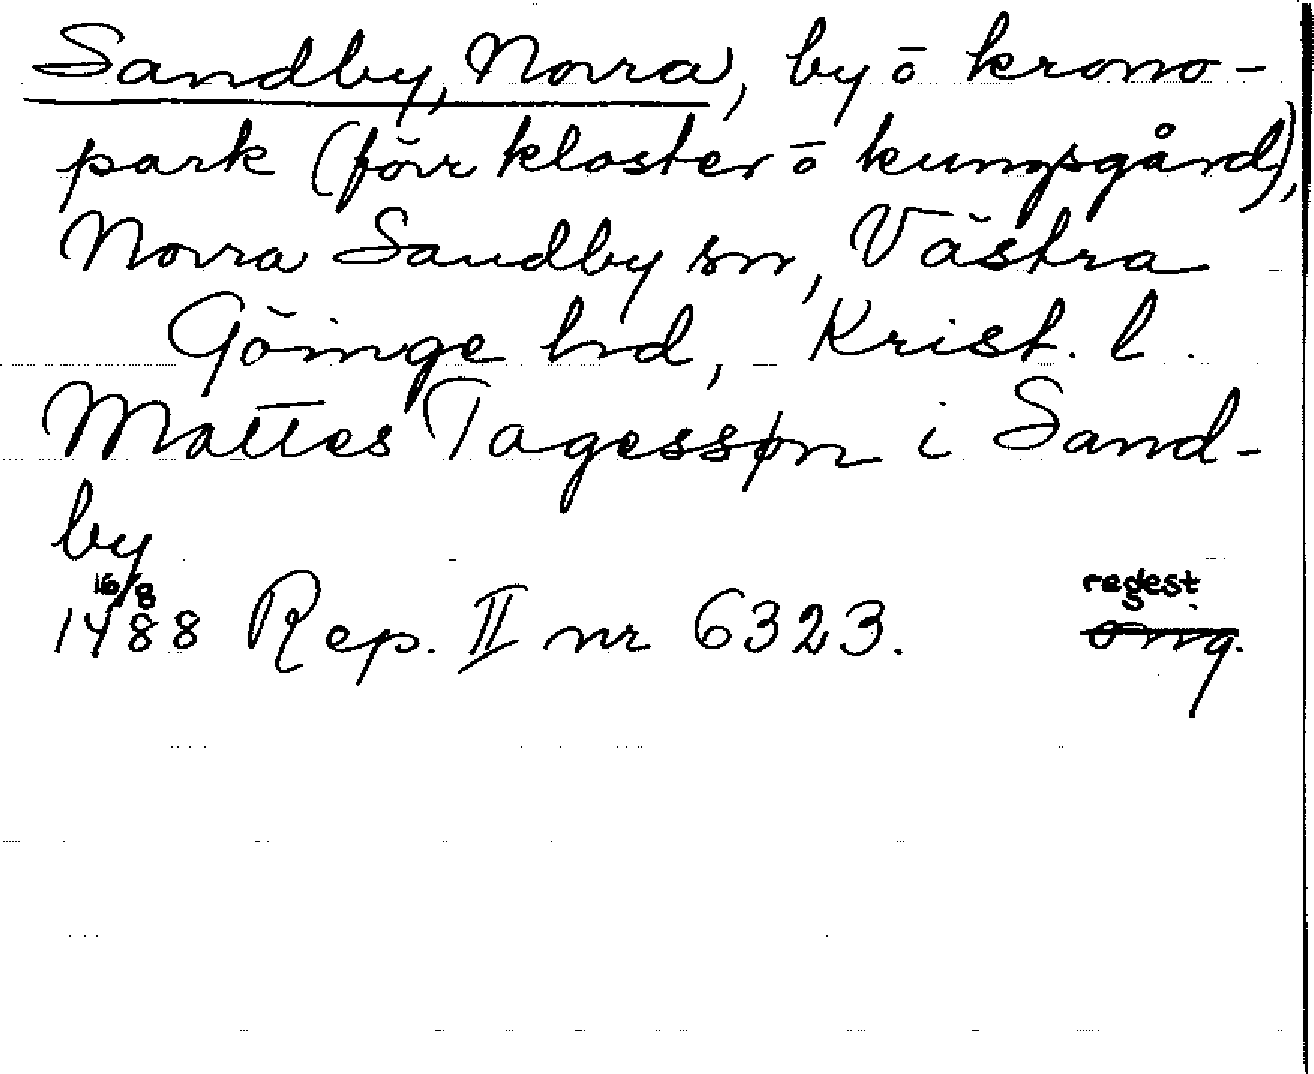 Sandby, Norra, by o krono-
park (förr kloster o kungsgård),
Norra Sandby sn, Västra
Göinge hd, Krist. l.
Mattes Tagessøn i Sand-
by
16/8 regest
1488 Rep. II nr 6323. orig.